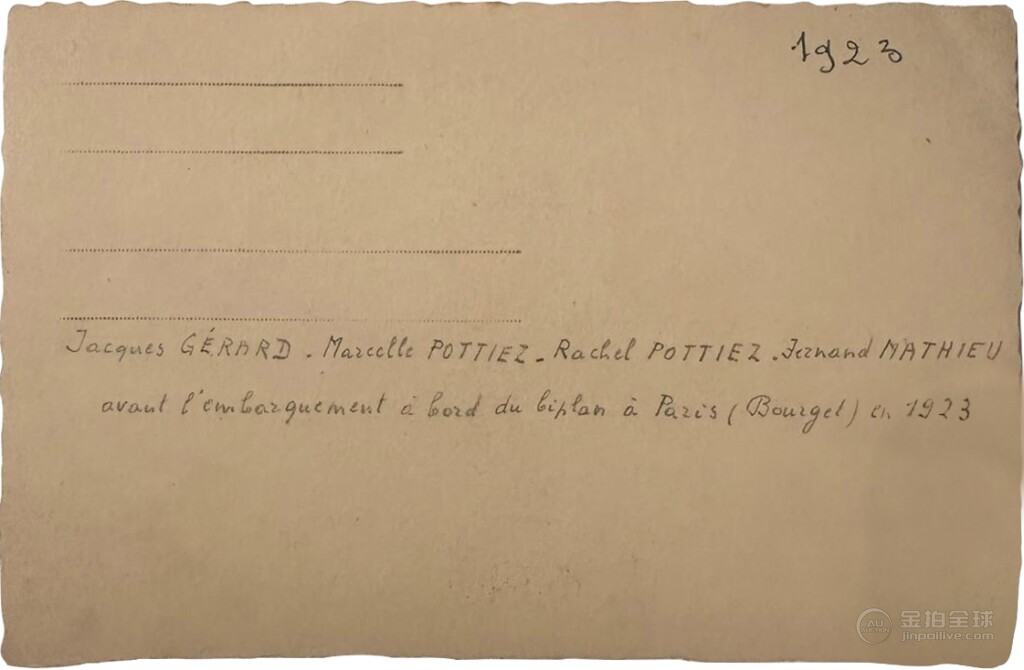 1923
Jacques GÉRARD - Marcelle POTTIEZ - Rachel POTTIEZ - Fernand MATHIEU
avant l'embarquement à bord du biplan à Paris (Bourget) en 1923
AU
AUCTION
金拍全球
jinpailive.com